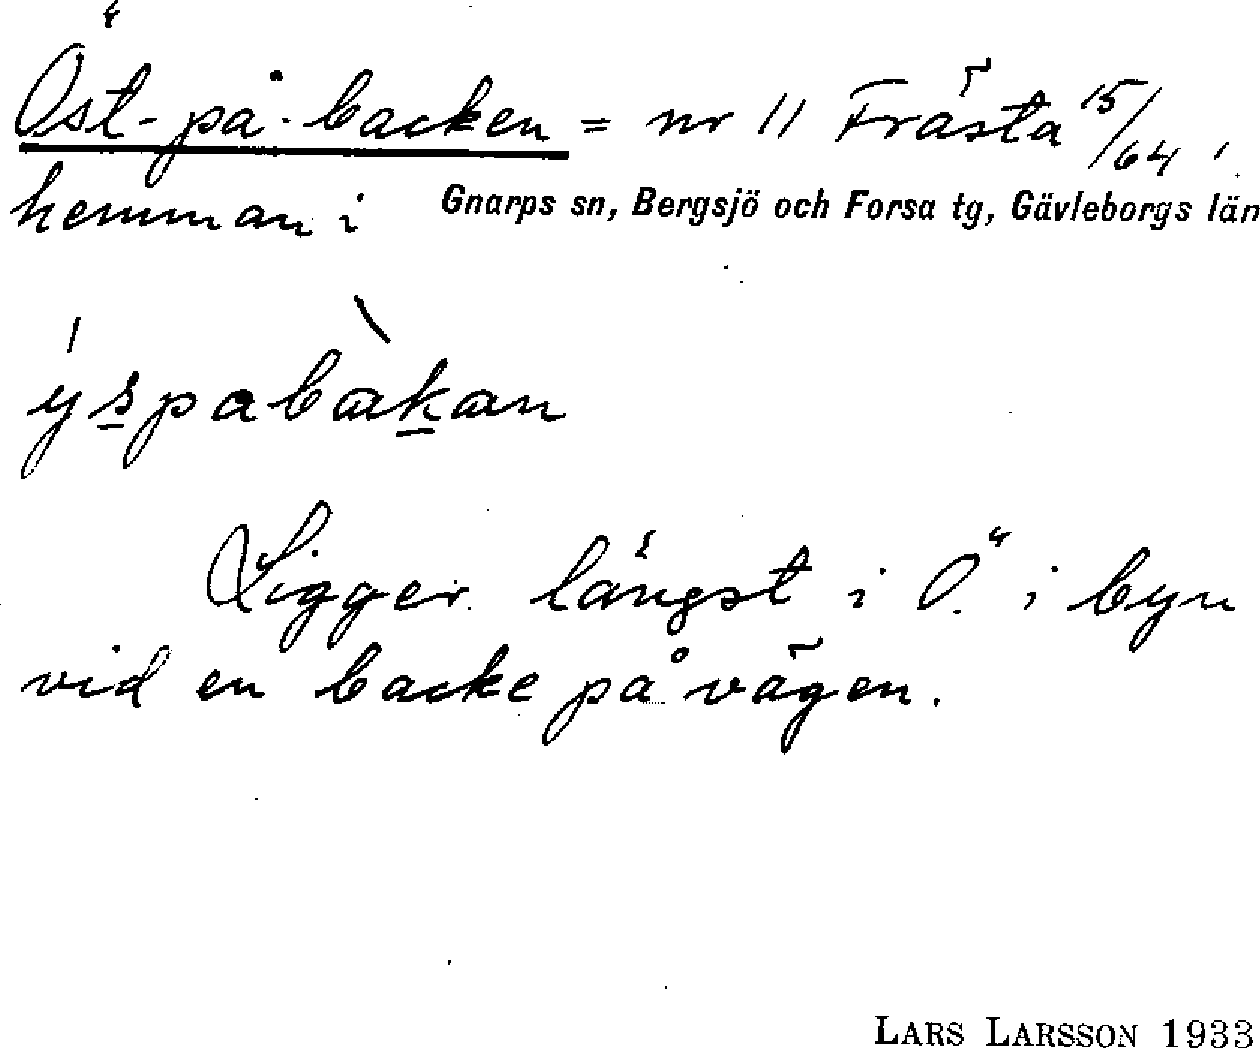 Öst-på-backen = nr 11 Frästa 15/64,
hemman i Gnarps sn, Bergsjö och Forsa tg, Gävleborgs län
ýspabàkan
Ligger längst i Ö. i byn
vid en backe på vägen.
LARS LARSSON 1933